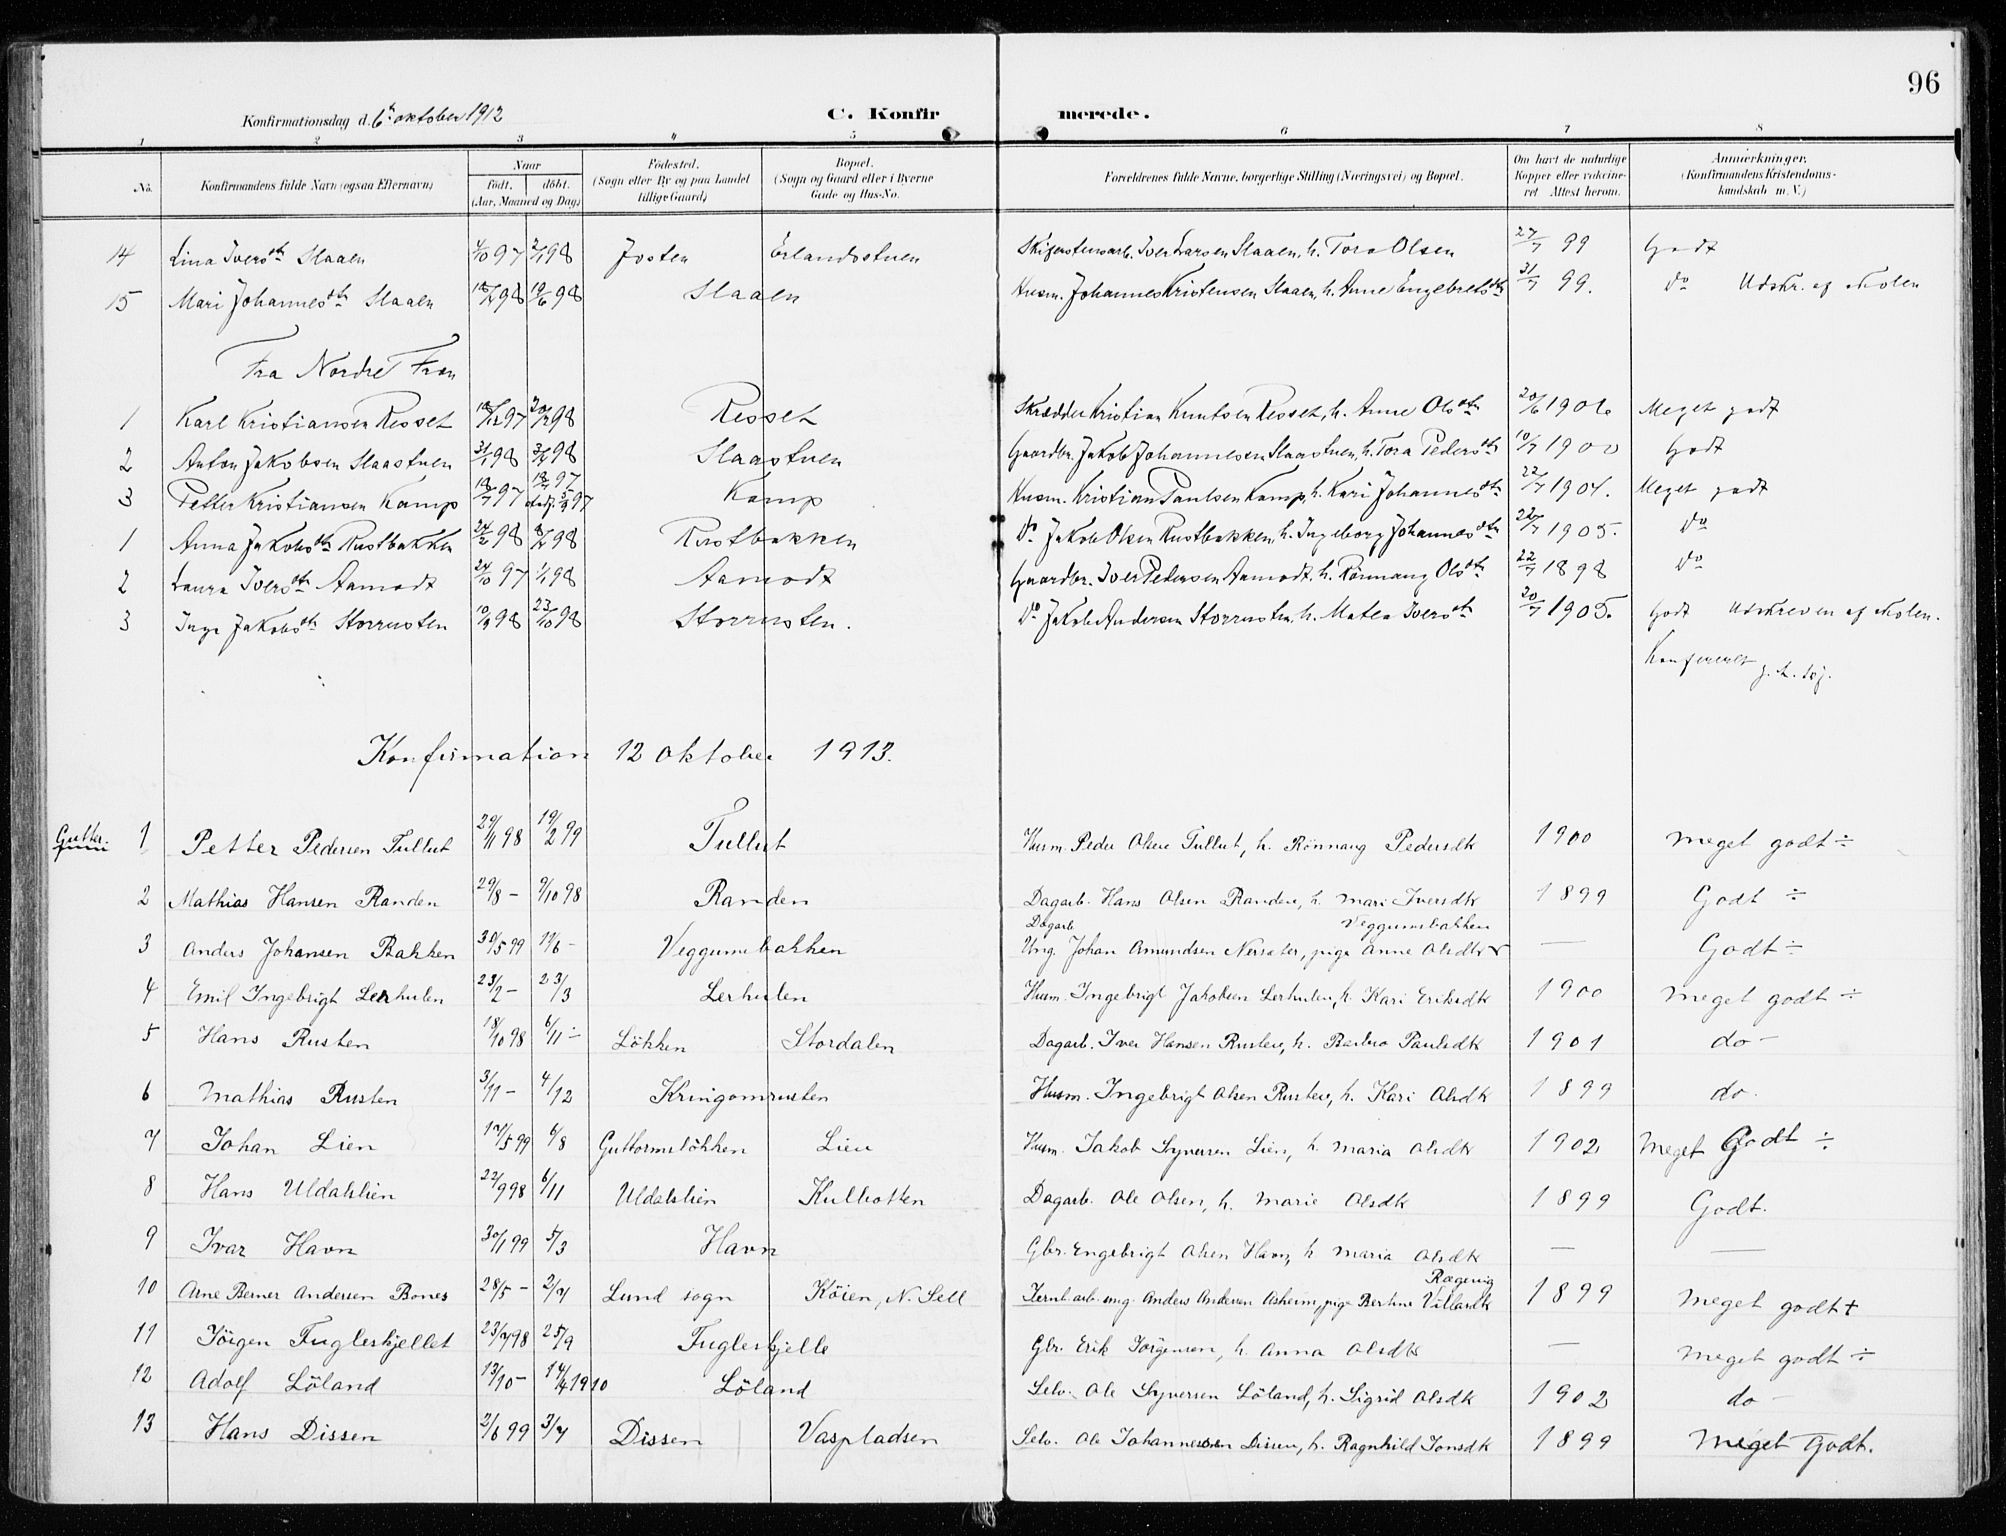 96
Konfirmationsdag d. 6te oktober 1912 C. Konfirmerede.
1 2 3 4 5 6 7 8
No. Konfirmandens fulde Navn (ogsaa Efternavn) Naar født. døbt. (Aar, Maaned og Dag) Fødested. (Sogn eller By og paa Landet tillige Gaard) Bopæl. (Sogn og Gaard eller i Byerne Gade og Hus-No. Forældrenes fulde Navne, borgerlige Stilling (Næringsvei) og Bopæl. Om havt de naturlige Kopper eller vakcineret Attest herom. Anmerkninger. (Konfirmandens Kristendomskundskab m. V.)
14 Lina Iversdtr Slaaen 4/10 97 2/1 98 Josten Erlandsstuen Skiferstensarb. Iver Larsen Slaaen, h. Tora Olsen 27/7 99 Godt
15 Mari Johannesdtr Slaaen 98 19/6 98 Slaaen Husm. Johannes Kristensen Slaaen, h. Anne Engebretsdtr 31/7 99. do Udskr. af skolen
Fra Nordre Fron
1 Karl Kristiansen Resset 18/12 97 98 Resset Skrædder Kristian Knutsen Resset, h. Anne Olsdtr 20/6 1901. Meget godt
2 Anton Jakobsen Slaastuen 31/1 98 98 Slaastuen Gaardbr. Jakob Johannesen Slaastuen, h. Tora Pedersdtr 10/7 1900 Godt
3 Petter Kristiansen Kamp 18/7 97 18/7 97 97 Kamp Husm. Kristian Paulsen Kamp, h. Kari Johannesdtr 22/7 1904. Meget godt
1 Anna Jakobsdtr Rustbakken 24/2 98 98 Rustbakken do Jakob Olsen Rustbakken, h. Ingeborg Johannesdtr 1905. do
2 Laura Iversdtr Aamodt 24/10 97 1/1 98 Aamodt Gaardbr. Iver Pedersen Aamodt, h. Rönnaug Olsdtr 22/7 1898 do
3 Inga Jakobsdtr Storrusten 10/9 98 23/10 98 Storrusten. do Jakob Andersen Storrusten, h. Matea Iversdtr 20/7 1905. Godt Udskreven af skolen.
Konfereret
Konfirmation 12 oktober 1913.
Gutter 1 Petter Pedersen Tullut 29/11 98 19/2 99 Tullut Husm. Peder Olsen Tullut, h. Rönnaug Pedersdtr 1900 Meget godt ÷
2 Mathias Hansen Randen 29/8 - 9/10 98 Randen Dagarb. Hans Olsen Randen, h. Mari Iversdtr 1899 Godt ÷
Dagarb. Veggumsbakken
3 Anders Johansen Bakken 30/5 99 19/6 - Veggumsbakken Ung. Johan Amundsen Nersater, pige Anne Olsdtr — Godt ÷
4 Emil Ingebrigt Lerhulen 23/2 - 23/3 Lerhulen Husm. Ingebrigt Jakobsen Lerhulen, h. Kari Eriksdtr 1900 Meget godt ÷
5 Hans Rusten 18/10 98 6/11 - Lökken Stordalen Dagarb. Iver Hansen Rusten, h. Barbro Paulsdtr 1901 do -
6 Mathias Rusten 3/11 - 4/12 Kringomrusten Husm. Ingebrigt Olsen Rusten, h. Kari Olsdtr 1899 do.
7 Johan Lien 17/5 99 6/8 Guttormslökken Lien Husm. Jakob Syversen Lien, h. Maria Olsdtr 1902 Meget Godt ÷
8 Hans Uldahlien 22/9 98 6/11 Uldahlien Kulhotten Dagarb. Ole Olsen, h. Marie Olsdtr 1899 Godt.
9 Ivar Havn 30/1 99 5/3 Havn Gbr. Engebrigt Olsen Havn, h. Maria Olsdtr — —
Ragevig
10 Arne Berner Andersen Bones 28/5 - 2/7 Lund sogn Köien, N. Sell Jernb.arb. ung. Anders Andersen Asheim, pige Bertine Villasdtr 1899 Meget godt +
11 Jörgen Fugleskjellet 23/7 98 25/9 Fugleskjelle Gbr. Erik Jörgensen, h. Anna Olsdtr — Meget godt ÷
12 Adolf Löland 13/10 - 14/4 1910 Löland Selv. Ole Syversen Löland, h. Sigrid Olsdtr 1902 do -
13 Hans Dissen 2/6 99 3/7 Dissen Vaspladsen Selv. Ole Johannessen Dissen, h. Ragnhild Jonsdtr 1899 Meget Godt.